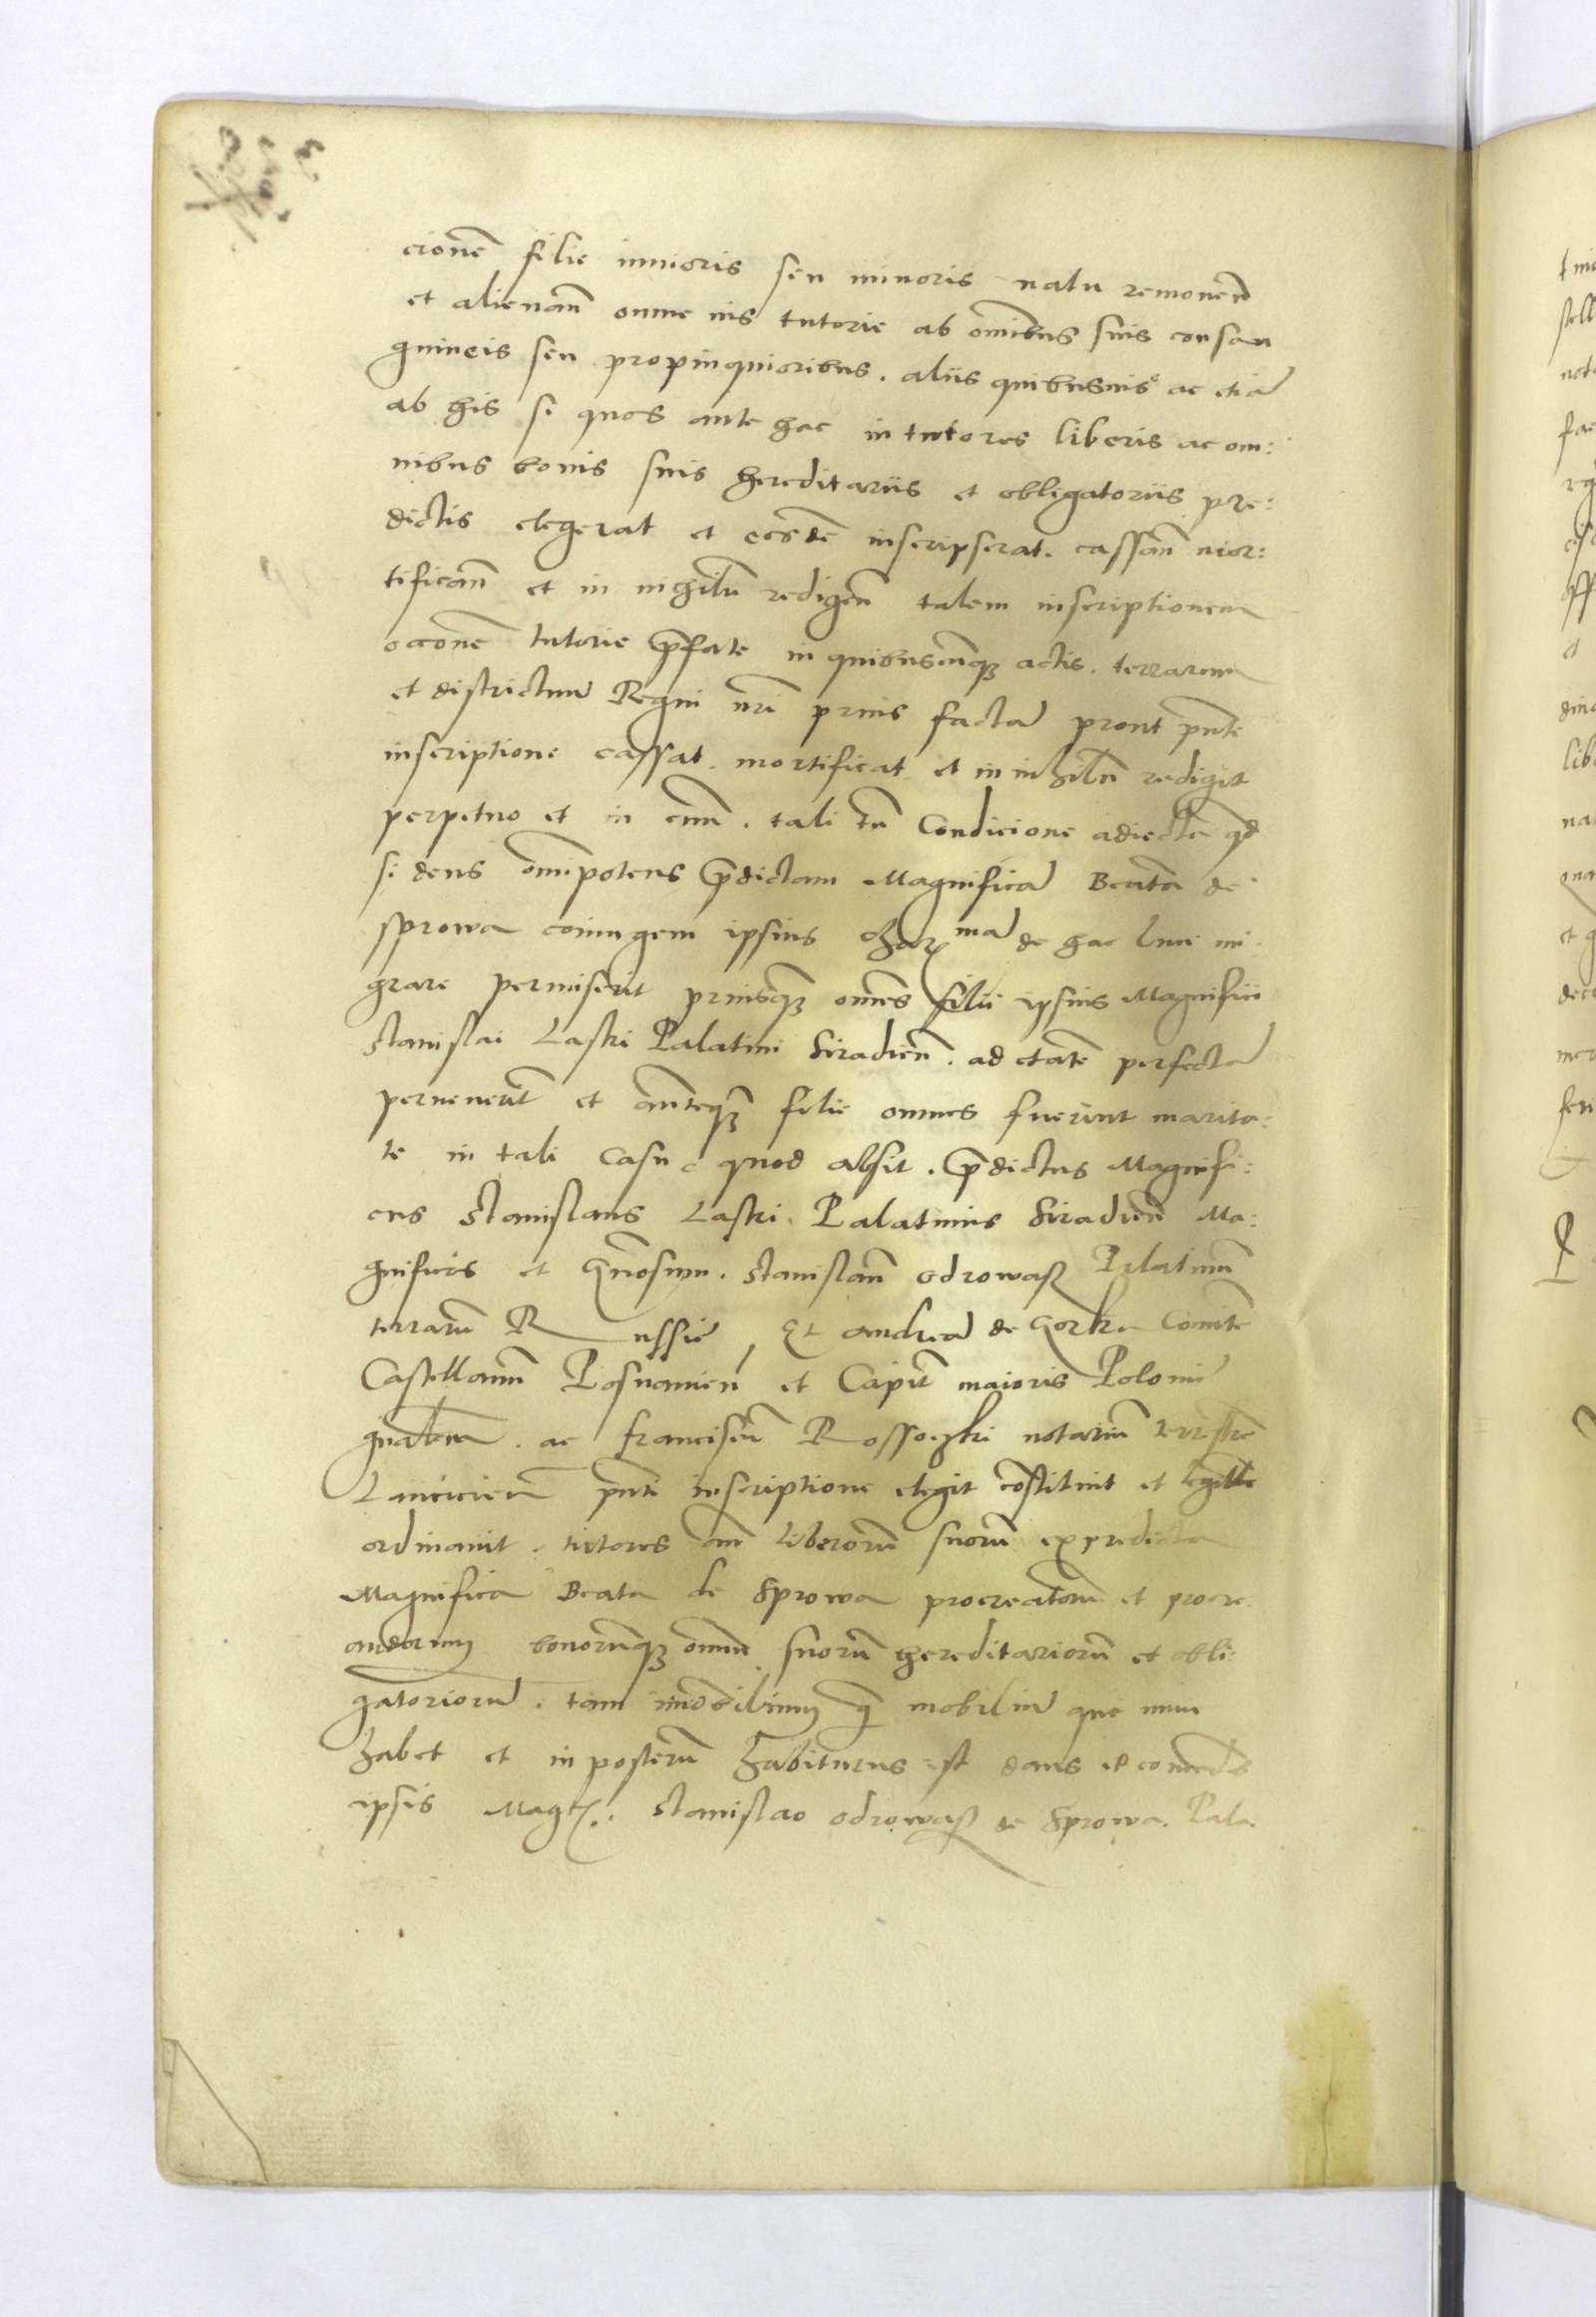 cionē filie iunioris seu minoris natu remonen̄
et alienan̄ omne ius tutorie ab om̄ibus suis consan
guineis seu propinquioribus . aliis quibusuis ac etiā
ab his si quos ante hac in tutores liberis ac om:
nibus bonis suis hereditariis et obligatoriis pre:
dictis elegerat et eosdē inscripserat . cassan̄ mor:
tifican̄ et in nihilū redigen̄ talem inscriptionem
tutorie p̄fate in quibuscunq₃ actis . terrarum
et districtuum Regni nr̄i prius factā prout pn̄te
inscriptione cassat . mortificat et in nihilū redigit
perpetuo et in euū . tali tn̄ Condicione adiecta qd̄
si deus om̄ipotens p̄dictam Magnificā Beatā de
sprowa coniugem ipsius char mā de hac luce mi
grare permiserit priusq₃ omēs filii ipsius Magnifici
Stanislai Laski Palatini Siradien̄ . ad etatē perfectā
peruenerīt et anteq₃ filie omnes fuerint marita:
te in tali casu quod absit . p̄dictus Magnifi:
cus Stanislaus Laski . Palatinus Siradien̄ Ma:
gnificos et gn̄osum . Stanislaū odrowąsz Palatinū
terrarū Russie , Et andreā de Gorka Comitē
Castellanū Posnanien̄ et Capit̄ maioris Polonie
gnālem . ac franciscū Rossoczki notariū terrestrē
Lancicien̄ pn̄ti inscriptione elegit cōstituit et legitte
ordinauit . tutores om̄ liberorū suorū ex predicta
Magnifica Beata de Sprowa procreatorū et procre
andorum bonorūq₃ omniū suorū hereditariorū et obli:
gatoriorū . tam imobilium q̄ mobiliū que nunc
habet et in posterū habiturus est dans et concedēs
ipsis Magcis . Stanislao odrowąsz de Sprowa . Pala.